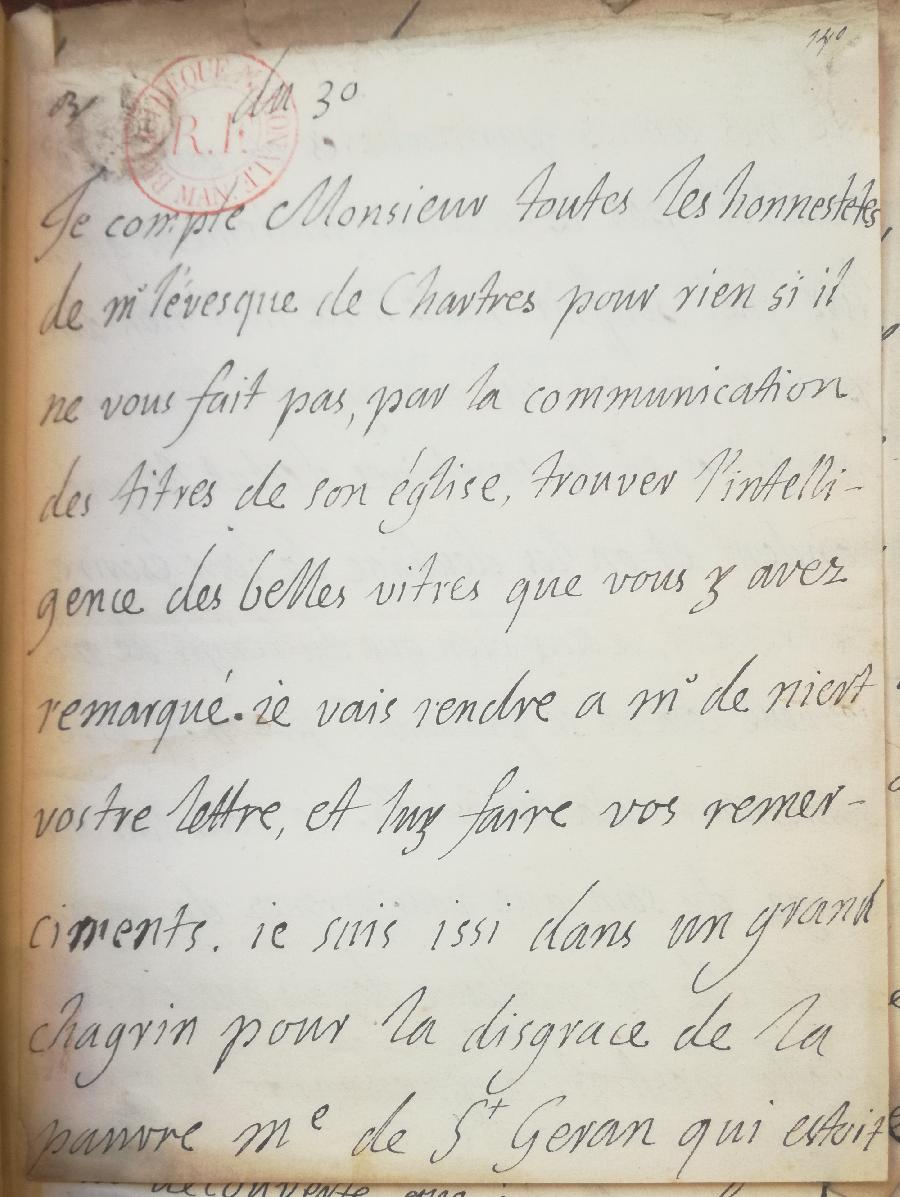 140
du 30
BIBLIOTHEQUE NATIONALE
R.F.
MAN.
Je compte Monsieur toutes les honnestetes
de mr l'évesque de Chartres pour rien si il
ne vous fait pas, par la communication
des titres de son église, trouver l'intelli-
gence des belles vitres que vous y avez
remarqué. ie vais rendre a mr de niert
vostre lettre, et luy faire vos remer-
ciments. ie suis issi dans un grand
chagrin pour la disgrace de la
pauvre me de St Geran qui estoit